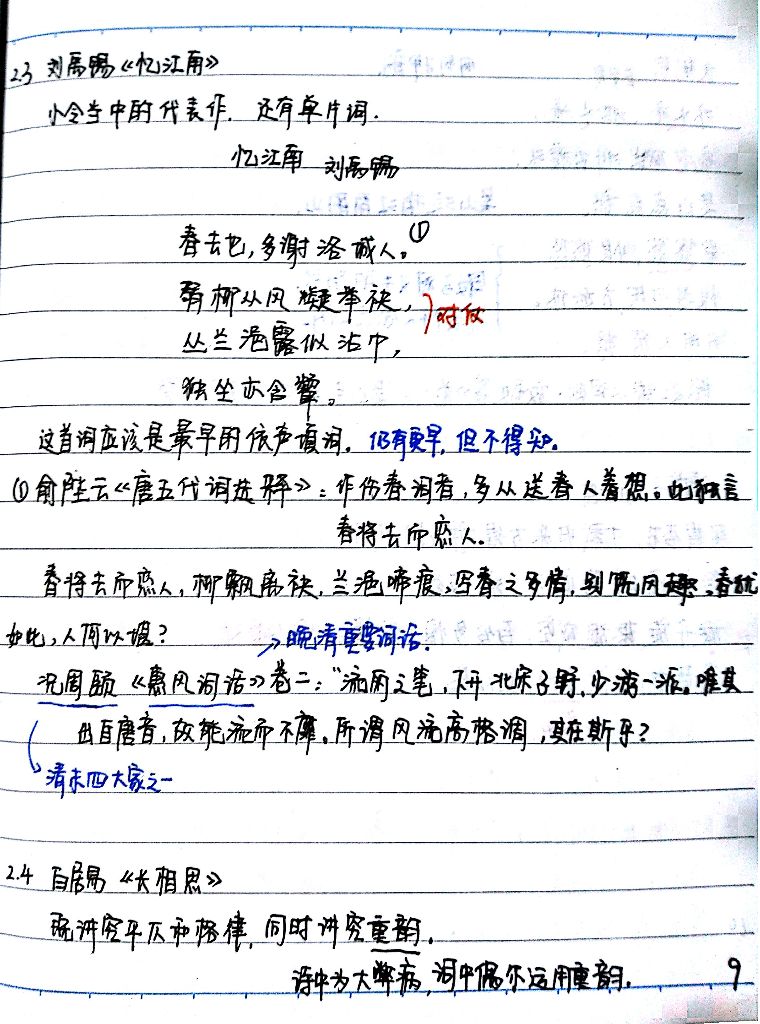 2.3 刘禹锡《忆江南》
小令当中的代表作. 还有单片词.
忆江南 刘禹锡
春去也,多谢洛城人。①
弱柳从风疑举袂, 
丛兰浥露似沾巾, }对仗
独坐亦含颦。
这首词应该是最早的依声填词. 仍有更早, 但不得知.
①俞陛云《唐五代词选释》: 作伤春词者, 多从送春人着想。此独言
春将去而恋人.
春将去而恋人, 柳飘离袂, 兰浥啼痕, 写春之多情, 别饶风趣, 春犹
如此, 人何以堪?
→晚清重要词话.
况周颐《蕙风词话》卷二: "流丽之笔, 下开北宋子野, 少游一派。唯其
出自唐音, 故能流而不靡。所谓风流高格调, 其在斯乎?
清末四大家之一
2.4 白居易《长相思》
既讲究平仄和格律, 同时讲究重韵.
诗中为大弊病, 词中偶尔运用重韵.
9